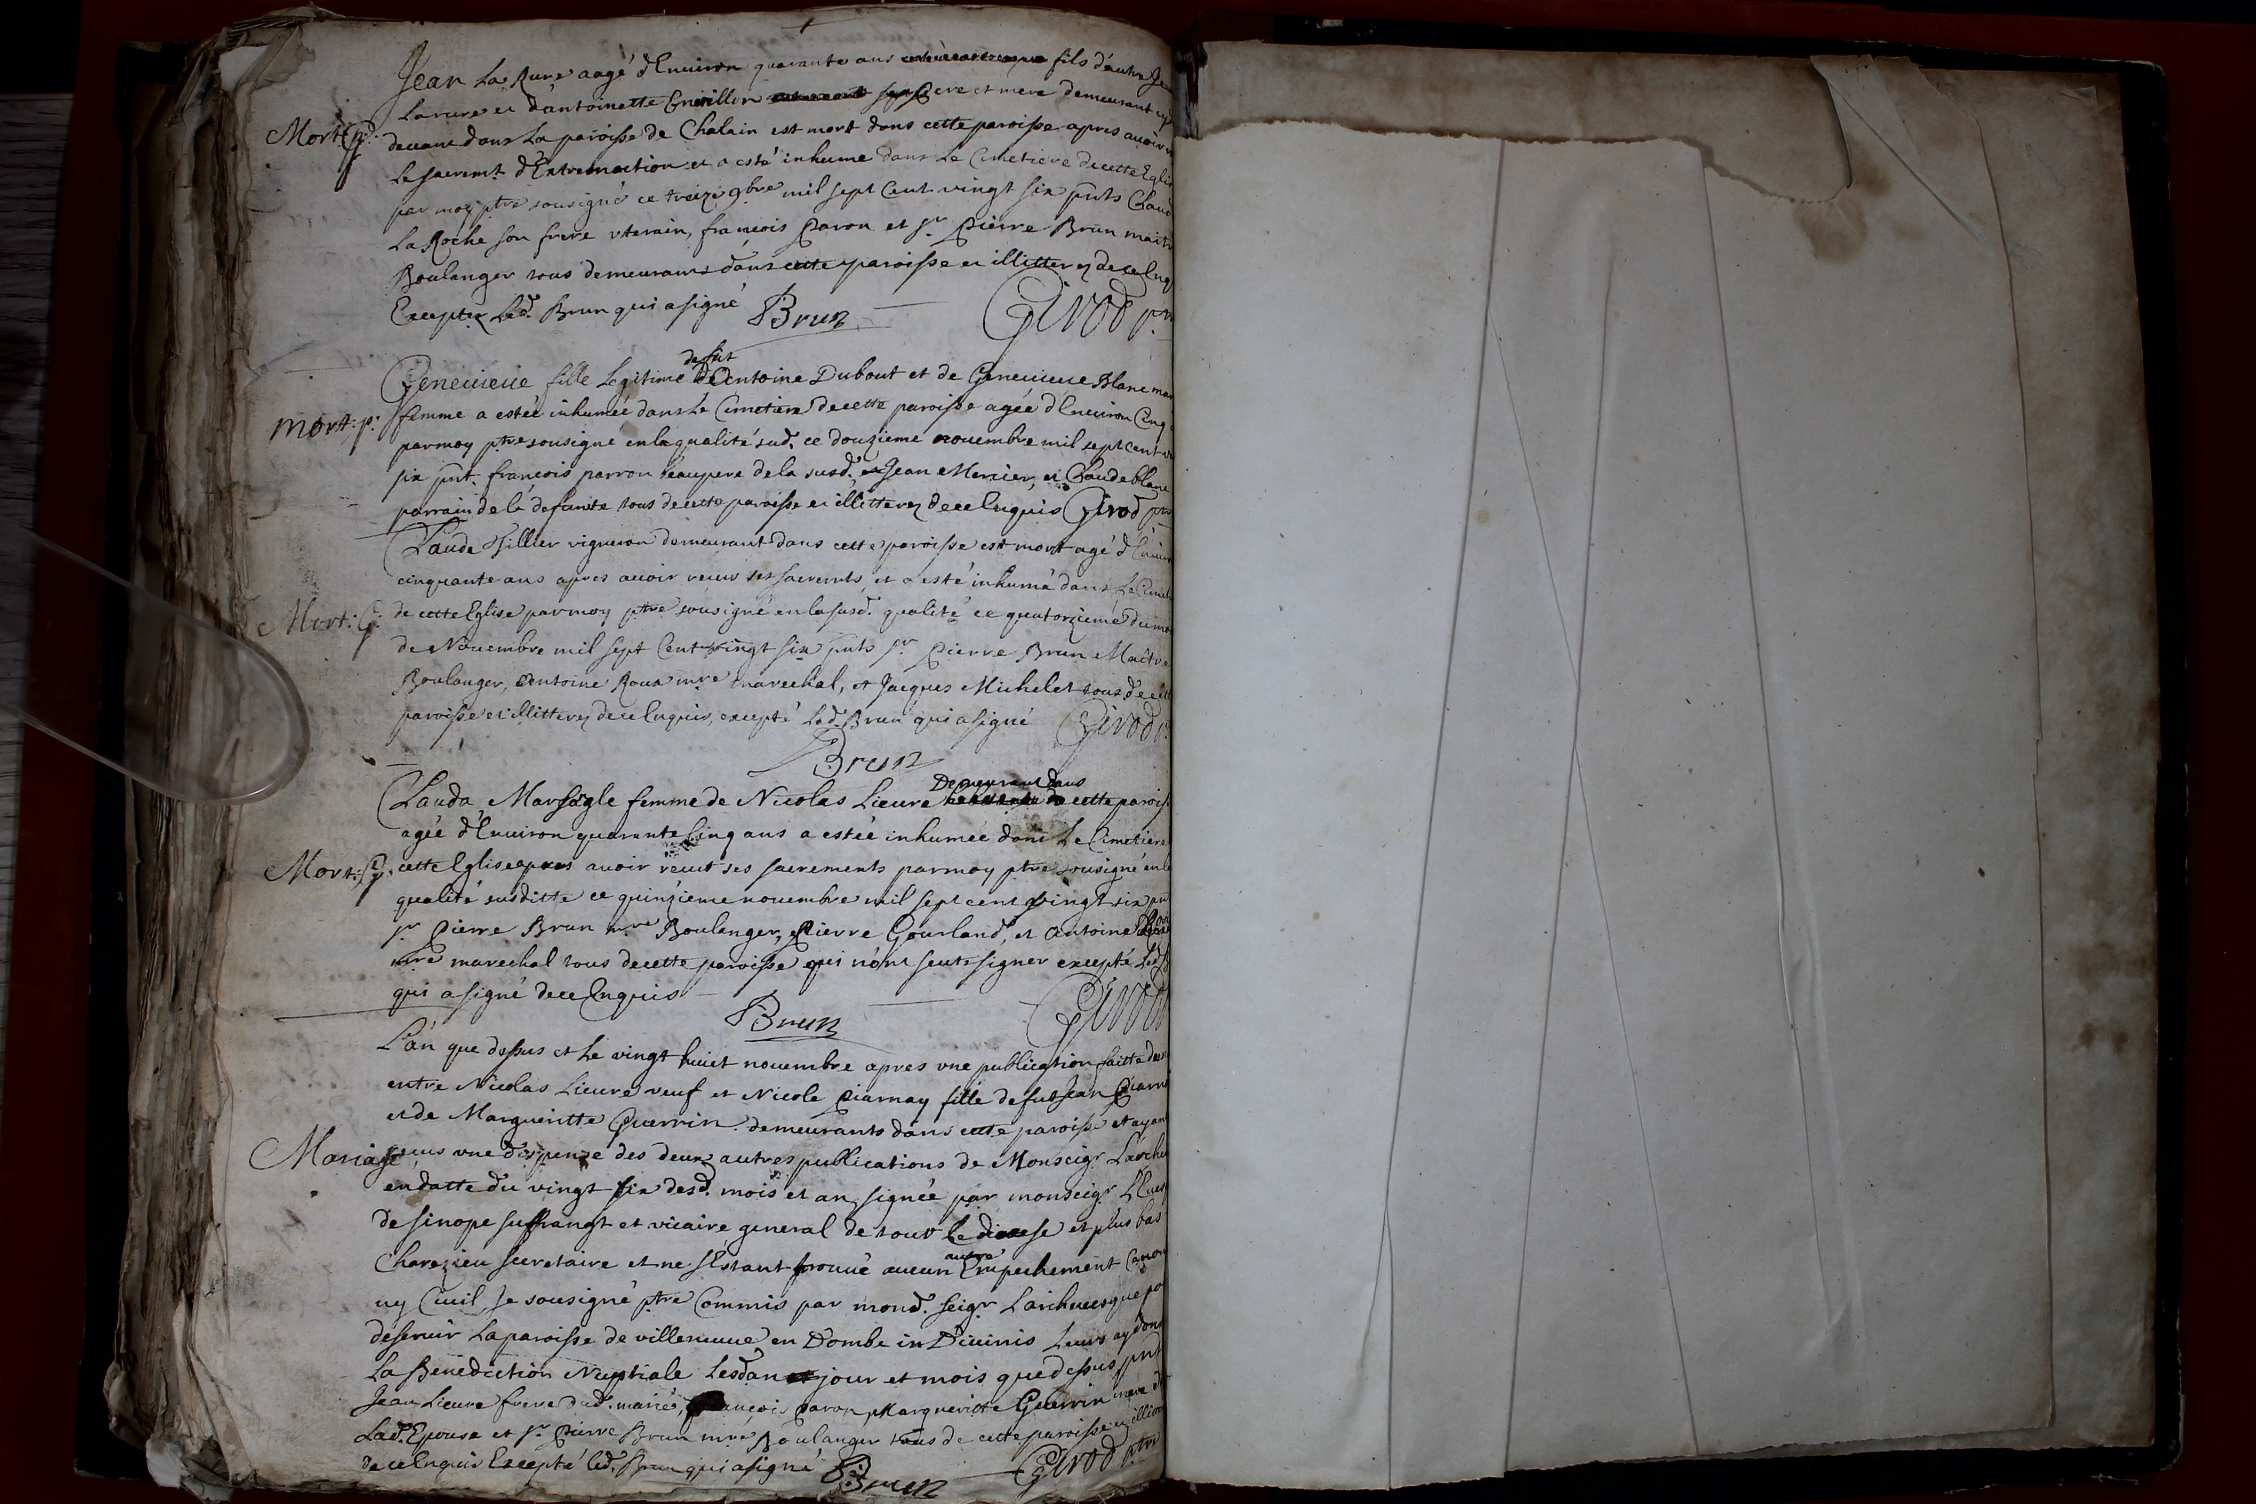 Jean La Rure aagé d'Enuiron quarante ans fils d'autre Jean
Larure et d'antoinette pere et mere demeurant cy
Mort: p:
deuant dans La paroisse de Chalain est mort dans cette paroisse apres auoir
Le sacremt. d'Extremoction et a esté inhumé dans Le Cimetiere de cette Eglise
par moy ptre sousigné ce treize 9bre mil sept Cent vingt six pnts Claude
La Roche son frere vterain, francois Paron et sr. Pierre Brun maitre
Boulanger tous demeurants dans cette paroisse et illitterez de ce Enq
Exceptez Led. Brun qui a signé Brun Girod ptre
Geneuieue fille Legitime defut de Antoine Dubout et de Geneuieue Blanc
Mort: p:
femme a estée inhumée dans Le Cimetiere de cette paroisse agée d'Enuiron Cinq
par moy ptre sousigné en la qualité sud. ce douzieme nouembre mil sept cent
six pnt. francois parron beaupere de la susd. Jean Mercier, et Claude blanc
parrain de la defunte tous de cette paroisse et illitterez de ce Enquis Girod ptre
Claude Tillier vigneron demeurant dans cette paroisse est mort agé d'Enuiron
cinquante ans apres auoir receus ses sacremts, et a esté inhumé dans Le Cimet
Mort: p:
de cette Eglise par moy ptre sousigné en la susd. qualité ce quatorzieme du mois
de Nouembre mil sept Cent vingt six pnts sr. Pierre Brun Maitre
Boulanger, Antoine Roux mre marechal, et Jacques Michelet tous de cette
paroisse et illitterez de ce Enquis, excepté Led. Brun qui a signé Girod p.
Brun
Demeurant dans
Clauda femme de Nicolas Lieure cette paroisse
agée d'Enuiron quarante Cinq ans a estée inhumée dans Le Cimetiere
Mort: p:
cette Eglise apres auoir receut ses sacrements par moy ptre sousigné en la
qualité susditte ce quinzieme nouembre mil sept cent vingt six pnt
sr. Pierre Brun mre Boulanger, Pierre Gourland, et Antoine Roux
mre marechal tous de cette paroisse qui n'ont seuts signer excepté Led.
qui a signé de ce Enquis
Brun Girod
L'an que dessus et Le vingt huict nouembre apres vne publication faitte
entre Nicolas Lieure veuf et Nicole Piarnay fille de fut Jean Piarnay
et de Margueritte Guerrin demeurants dans cette paroisse et ayant
Mariage
receus vne dispense des deux autres publications de Monseigr. L'archeu
en datte du vingt six desd. mois et an signée par monseigr. L'Eues
de sinope suffrangt et vicaire general de tout Le diocese et plus bas
autre
Charezieu secretaire et ne s'Estant trouué aucun Empechement Canon
ny Ciuil, Je sousigné ptre Commis par mond. seigr. L'archeuesque po
deseruir La paroisse de villeneuue en Dombe in Diuinis Leurs ay donné
La Benediction Nuptiale Lesd an jour et mois que dessus pnt
Jean Lieure frere dud. marié, francois Paron, Margueritte Guerrin mere de
Lad. Epouse et sr. Pierre Brun mre Boulanger tous de cette paroisse et illitterez
de ce Enquis Excepté Led. Brun qui a signé Brun Girod ptre